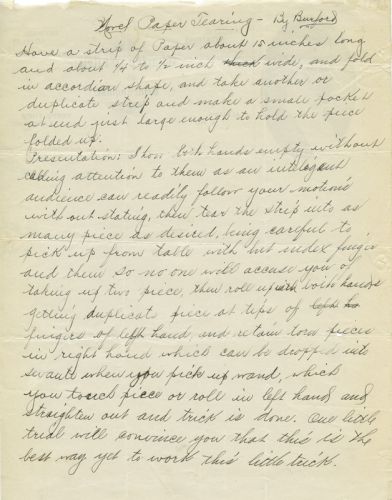 Novel Paper Tearing - By Burford
Have a strip of Paper about 15 inches long
and about 1/4 to 1/2 inch thick wide, and fold
in accordian shape, and take another or
duplicate strip and make a small pocket
at end just large enough to hold the piece
folded up.
Presentation: Show both hands empty without
calling attention to them as an inteligent
audience can readily follow your motions
with out stating, then tear the strip into as
many piece as desired, being careful to
pick up from table with but index finger
and thumb so no one will accuse you of
taking up two piece, then roll up with both hands
getting duplicate piece at tips of
fingers of left hand, and retain torn pieces
in right hand which can be dropped into
servante when you pick up wand, which
you touch piece or roll in left hand and
straighten out and trick is done. One little
trial will convince you that this is the
best way yet to work this little trick.